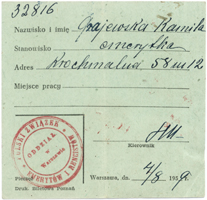 32816
Nazwisko i imię Grajewska Kamila
Stanowisko emerytka
Adres Krochmalna 58 m 12
Miejsce pracy
POLSKI ZWIĄZEK
ODDZIAŁ
w Warszawie
Kierownik
Warszawa, do. 4/8 1959.
Druk. Poznań